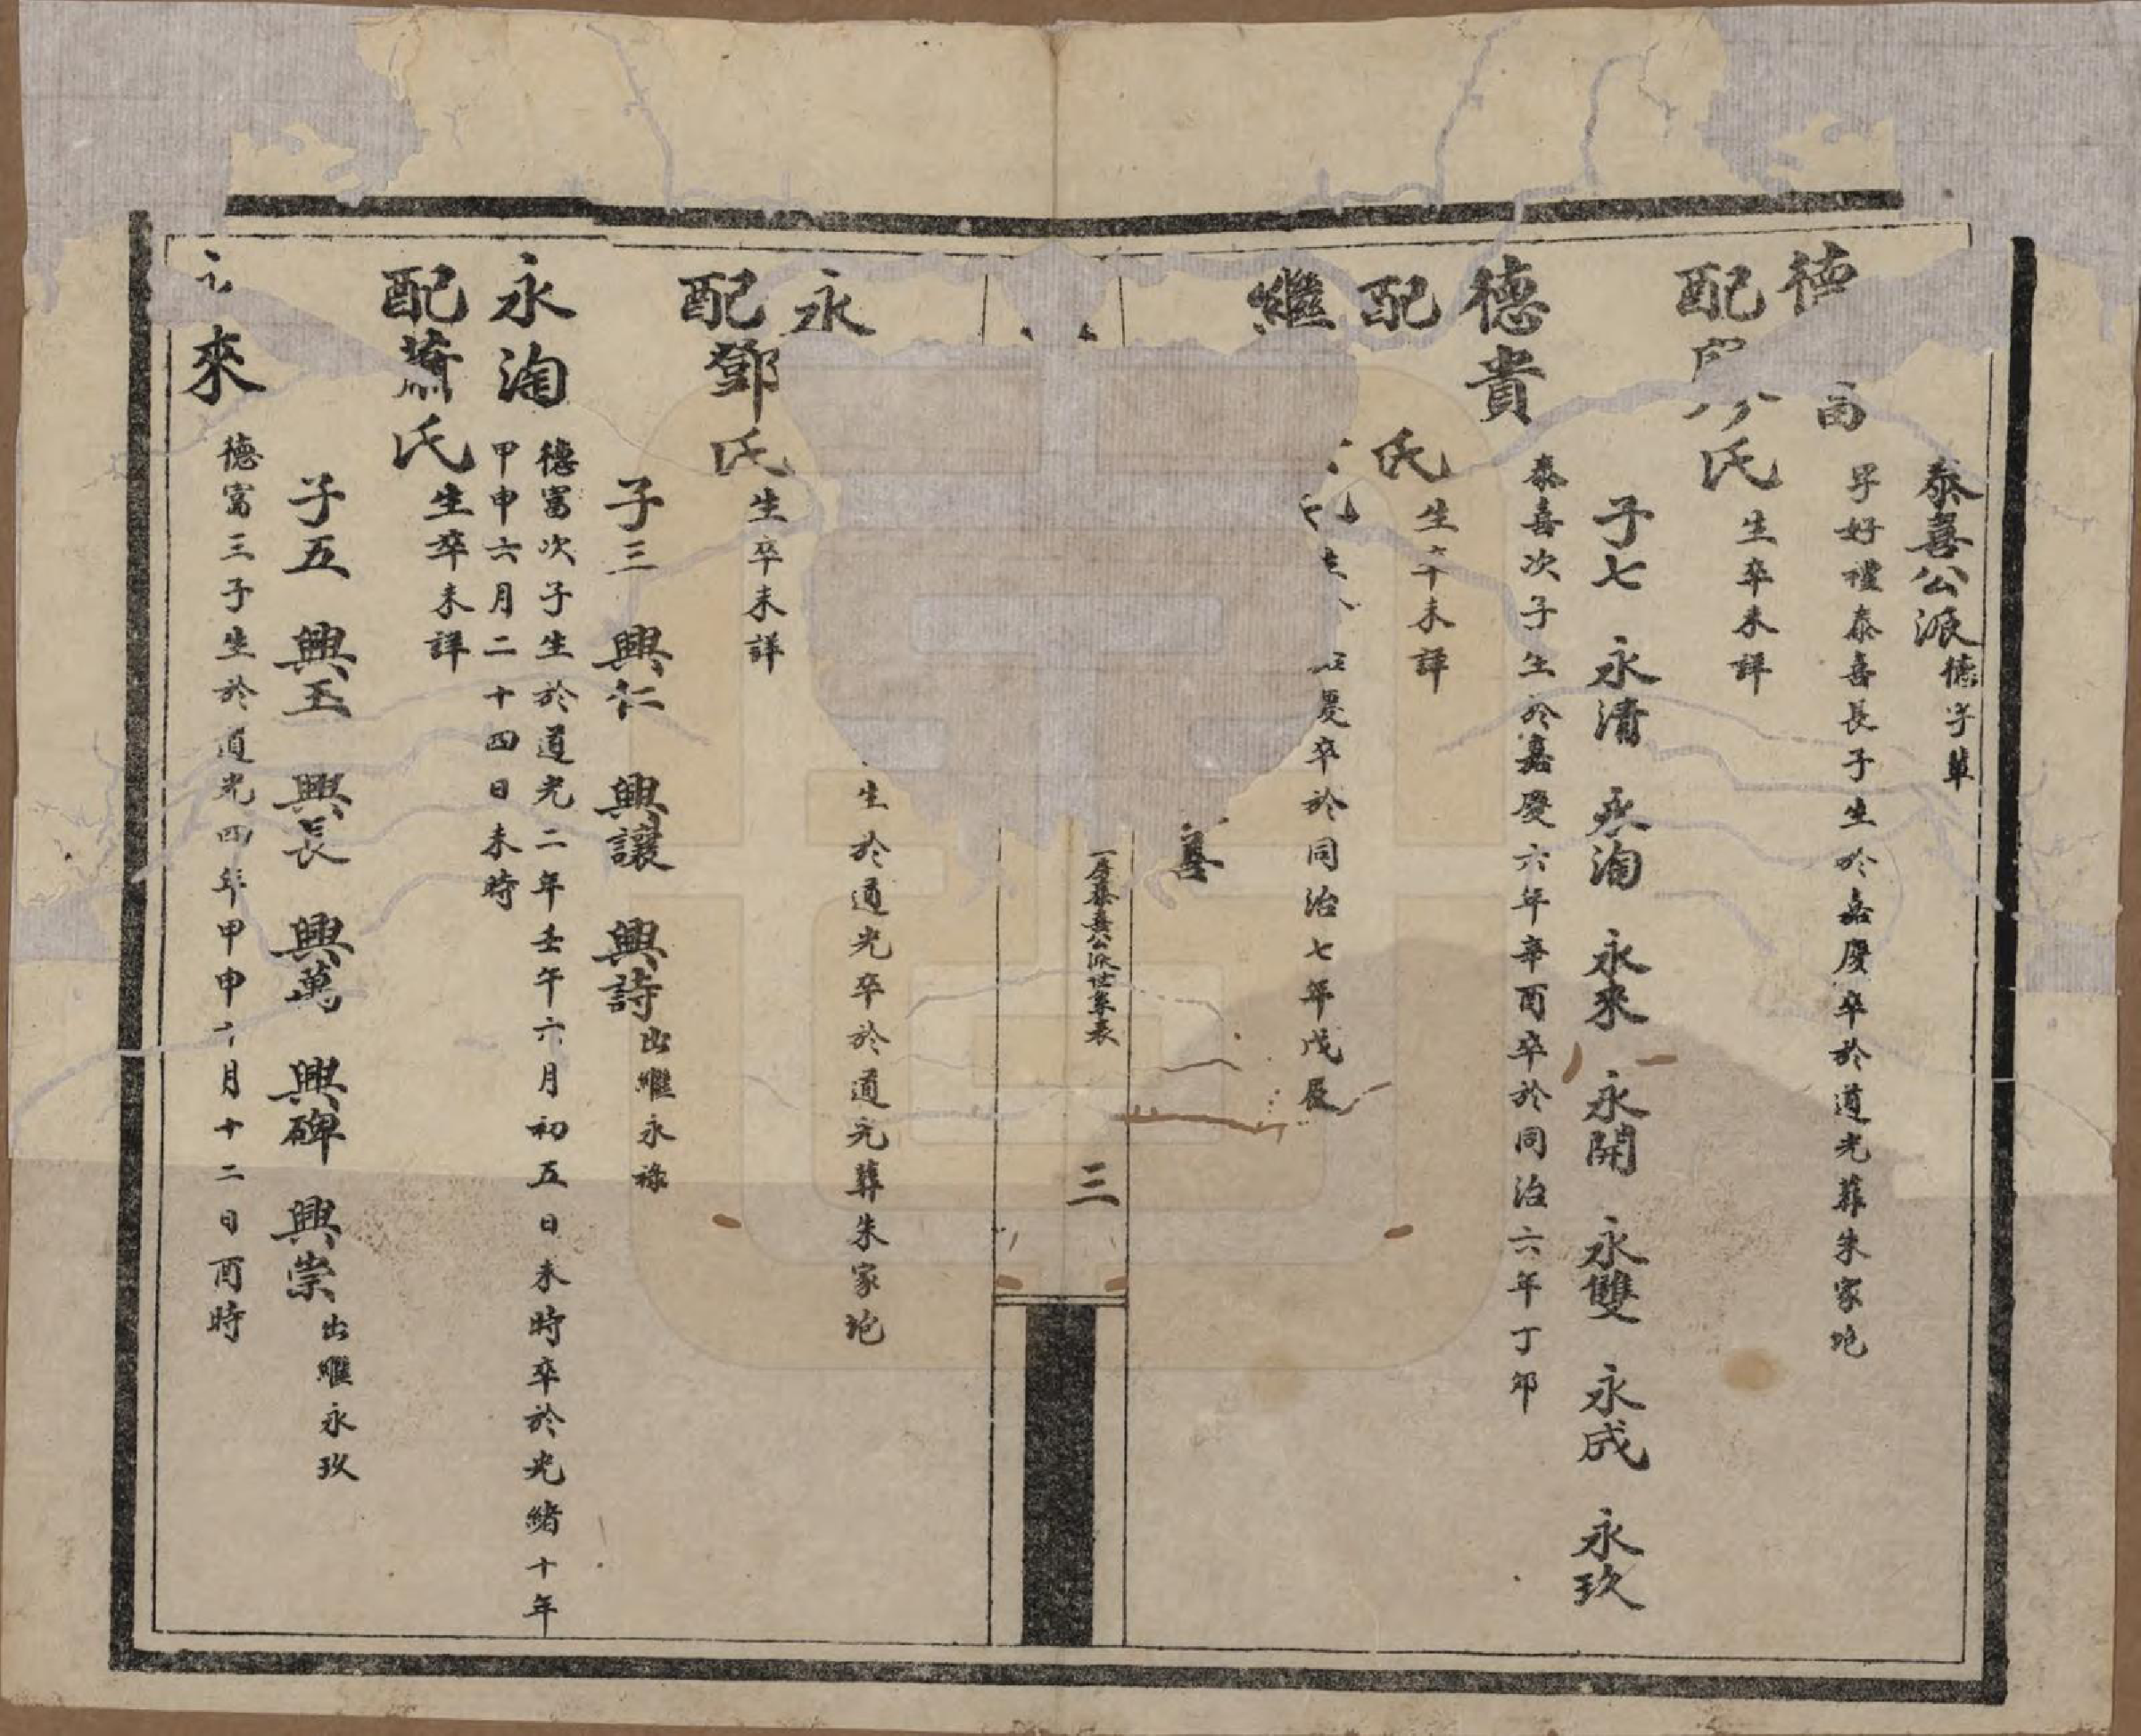 泰喜公派德字輩
德
字好禮泰喜長子生於嘉慶卒於道光葬朱家地
配 氏生卒未詳
子七 永清 永淘 永來 永開 永雙 永成 永玖
德貴泰喜次子生於嘉慶六年辛酉卒於同治六年丁卯
配 氏生卒未詳
繼 慶卒於同治七年戊辰
善
房泰喜公派世系表
三
永 生於道光卒於道光葬朱家地
配鄧氏生卒未詳
子三 興仁 興讓 興詩出繼永祿
永淘德富次子生於道光二年壬午六月初五日未時卒於光緒十年
甲申六月二十四日未時
配蕭氏生卒未詳
子五 興玉 興長 興萬 興碑 興崇出繼永玖
來德富三子生於道光四年甲申 月十二日酉時